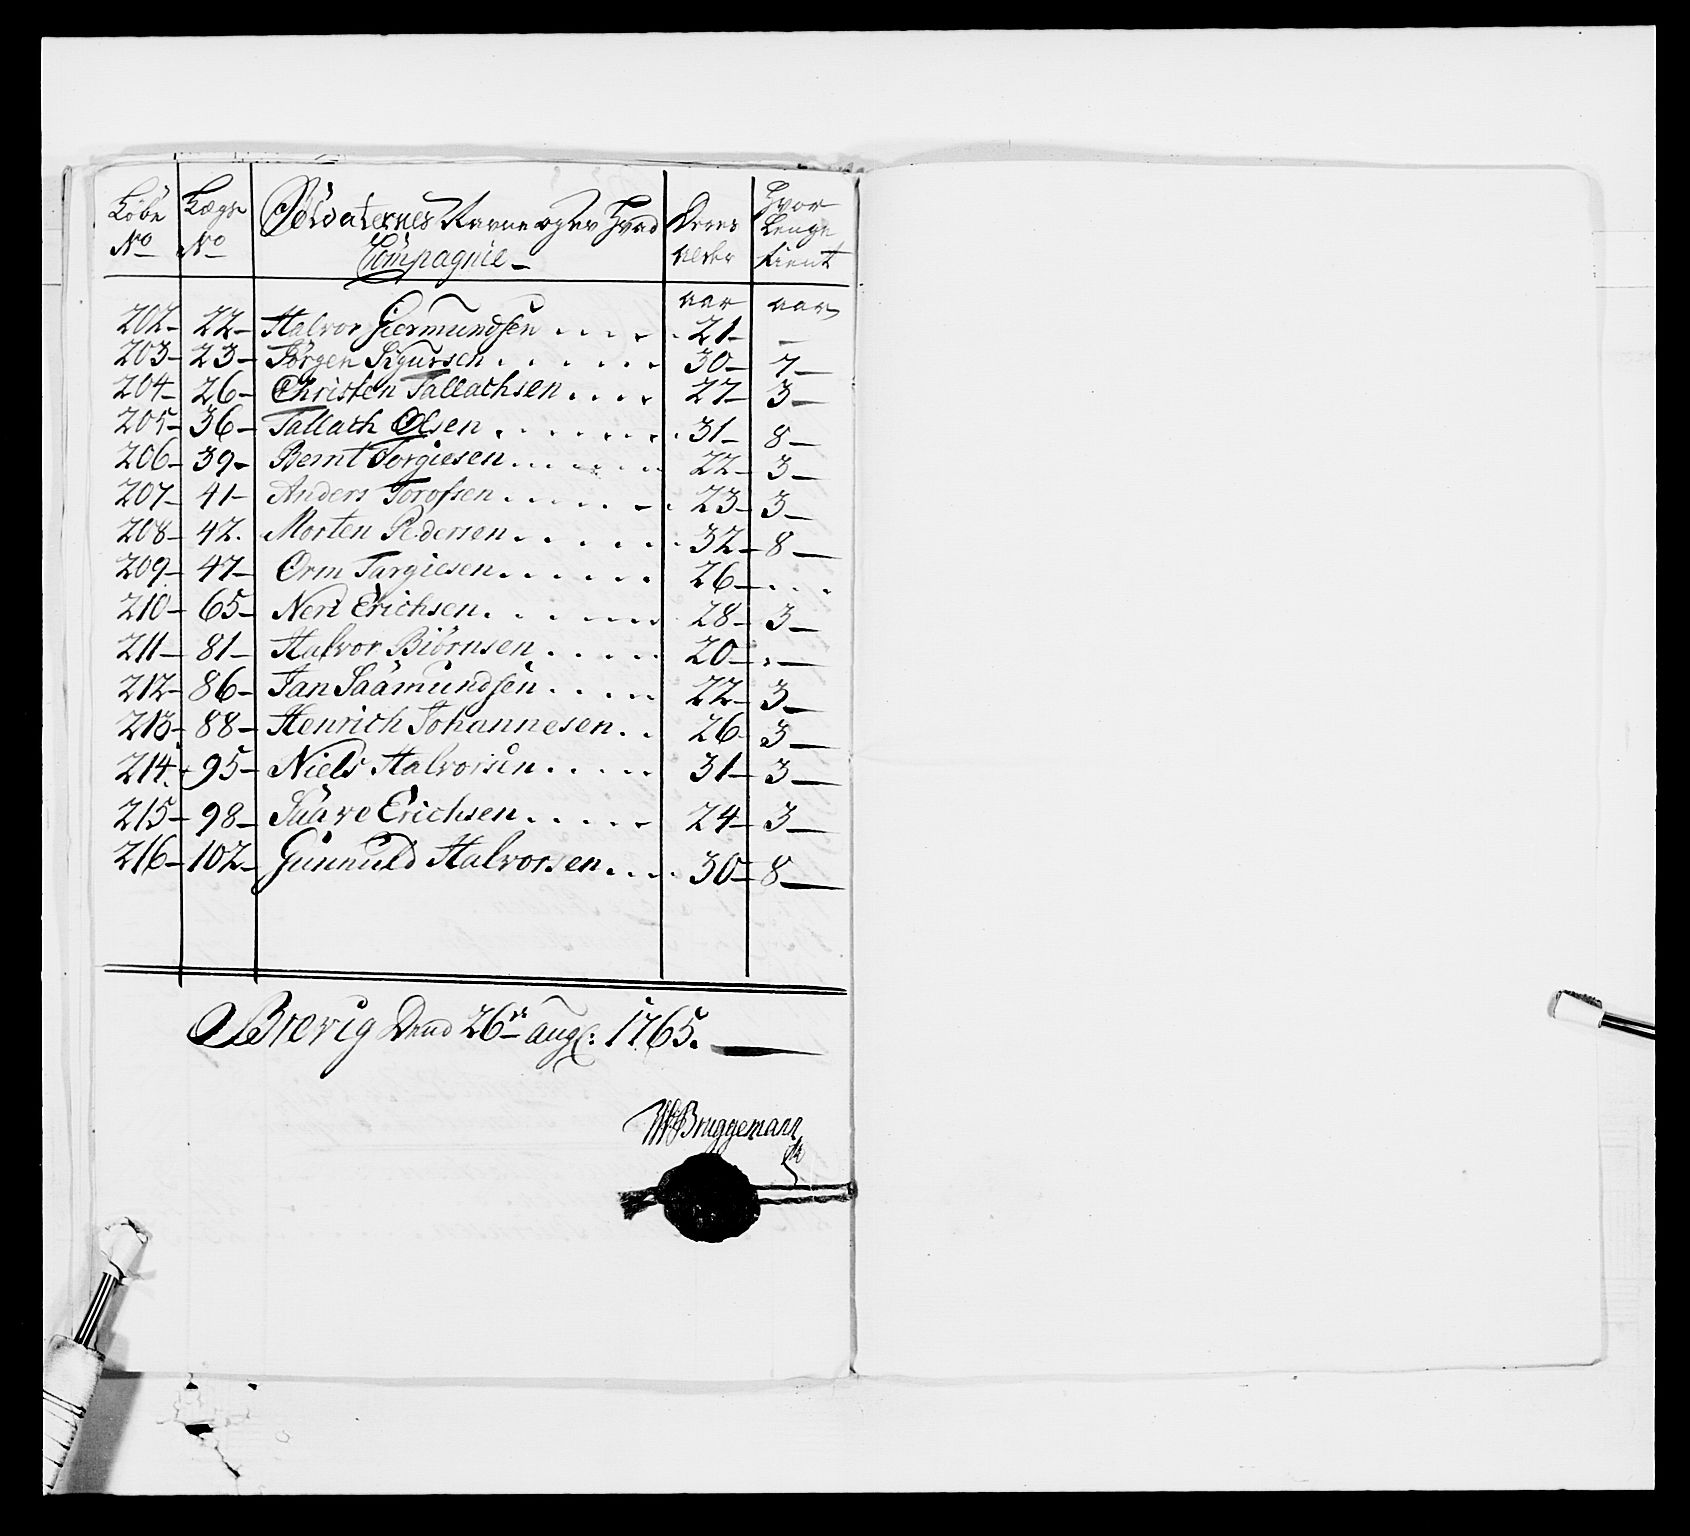 Löbe No Lægs No Soldaternes Navne og er Hvad Compagnie Deres alder Hvor Lenge tient
aar aar
202 22 Halvor Giermundsen 21 -
203 23 Jörgen Sigursen 30 7
204 26 Christen Tallachsen 27 3
205 36 Tallach Olsen 31 8
206 39 Bernt Torgiesen 22 3
207 41 Anders Torofsen 23 3
208 42 Morten Pedersen 32 8
209 47 Orm Targiesen 26
210 65 Neri Erichsen 28 3
211 81 Halvor Biörnsen 20 -
212 86 Jan Saamundsen 22 3
213 88 Henrich Johannesen 26 3
214 95 Niels Halvorsen 31 3
215 98 Saave Erichsen 24 3
216 102 Gunnuld Halvorsen 30 8
Brevig Dend 26de aug: 1765.
Bruggemann